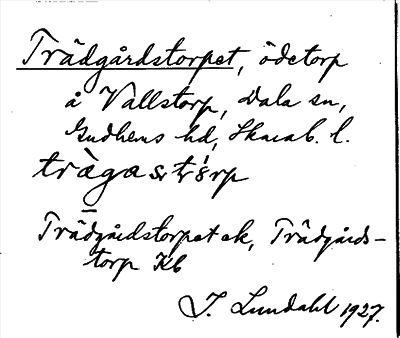 Trädgårdstorpet, ödetorp
å Vallstorp, Dala sn,
Gudhems hd, Skarab. l.
trägastơrp
Trädgårdstorpet ek, Trädgårds-
torp Kb
J. Lundahl 1927.